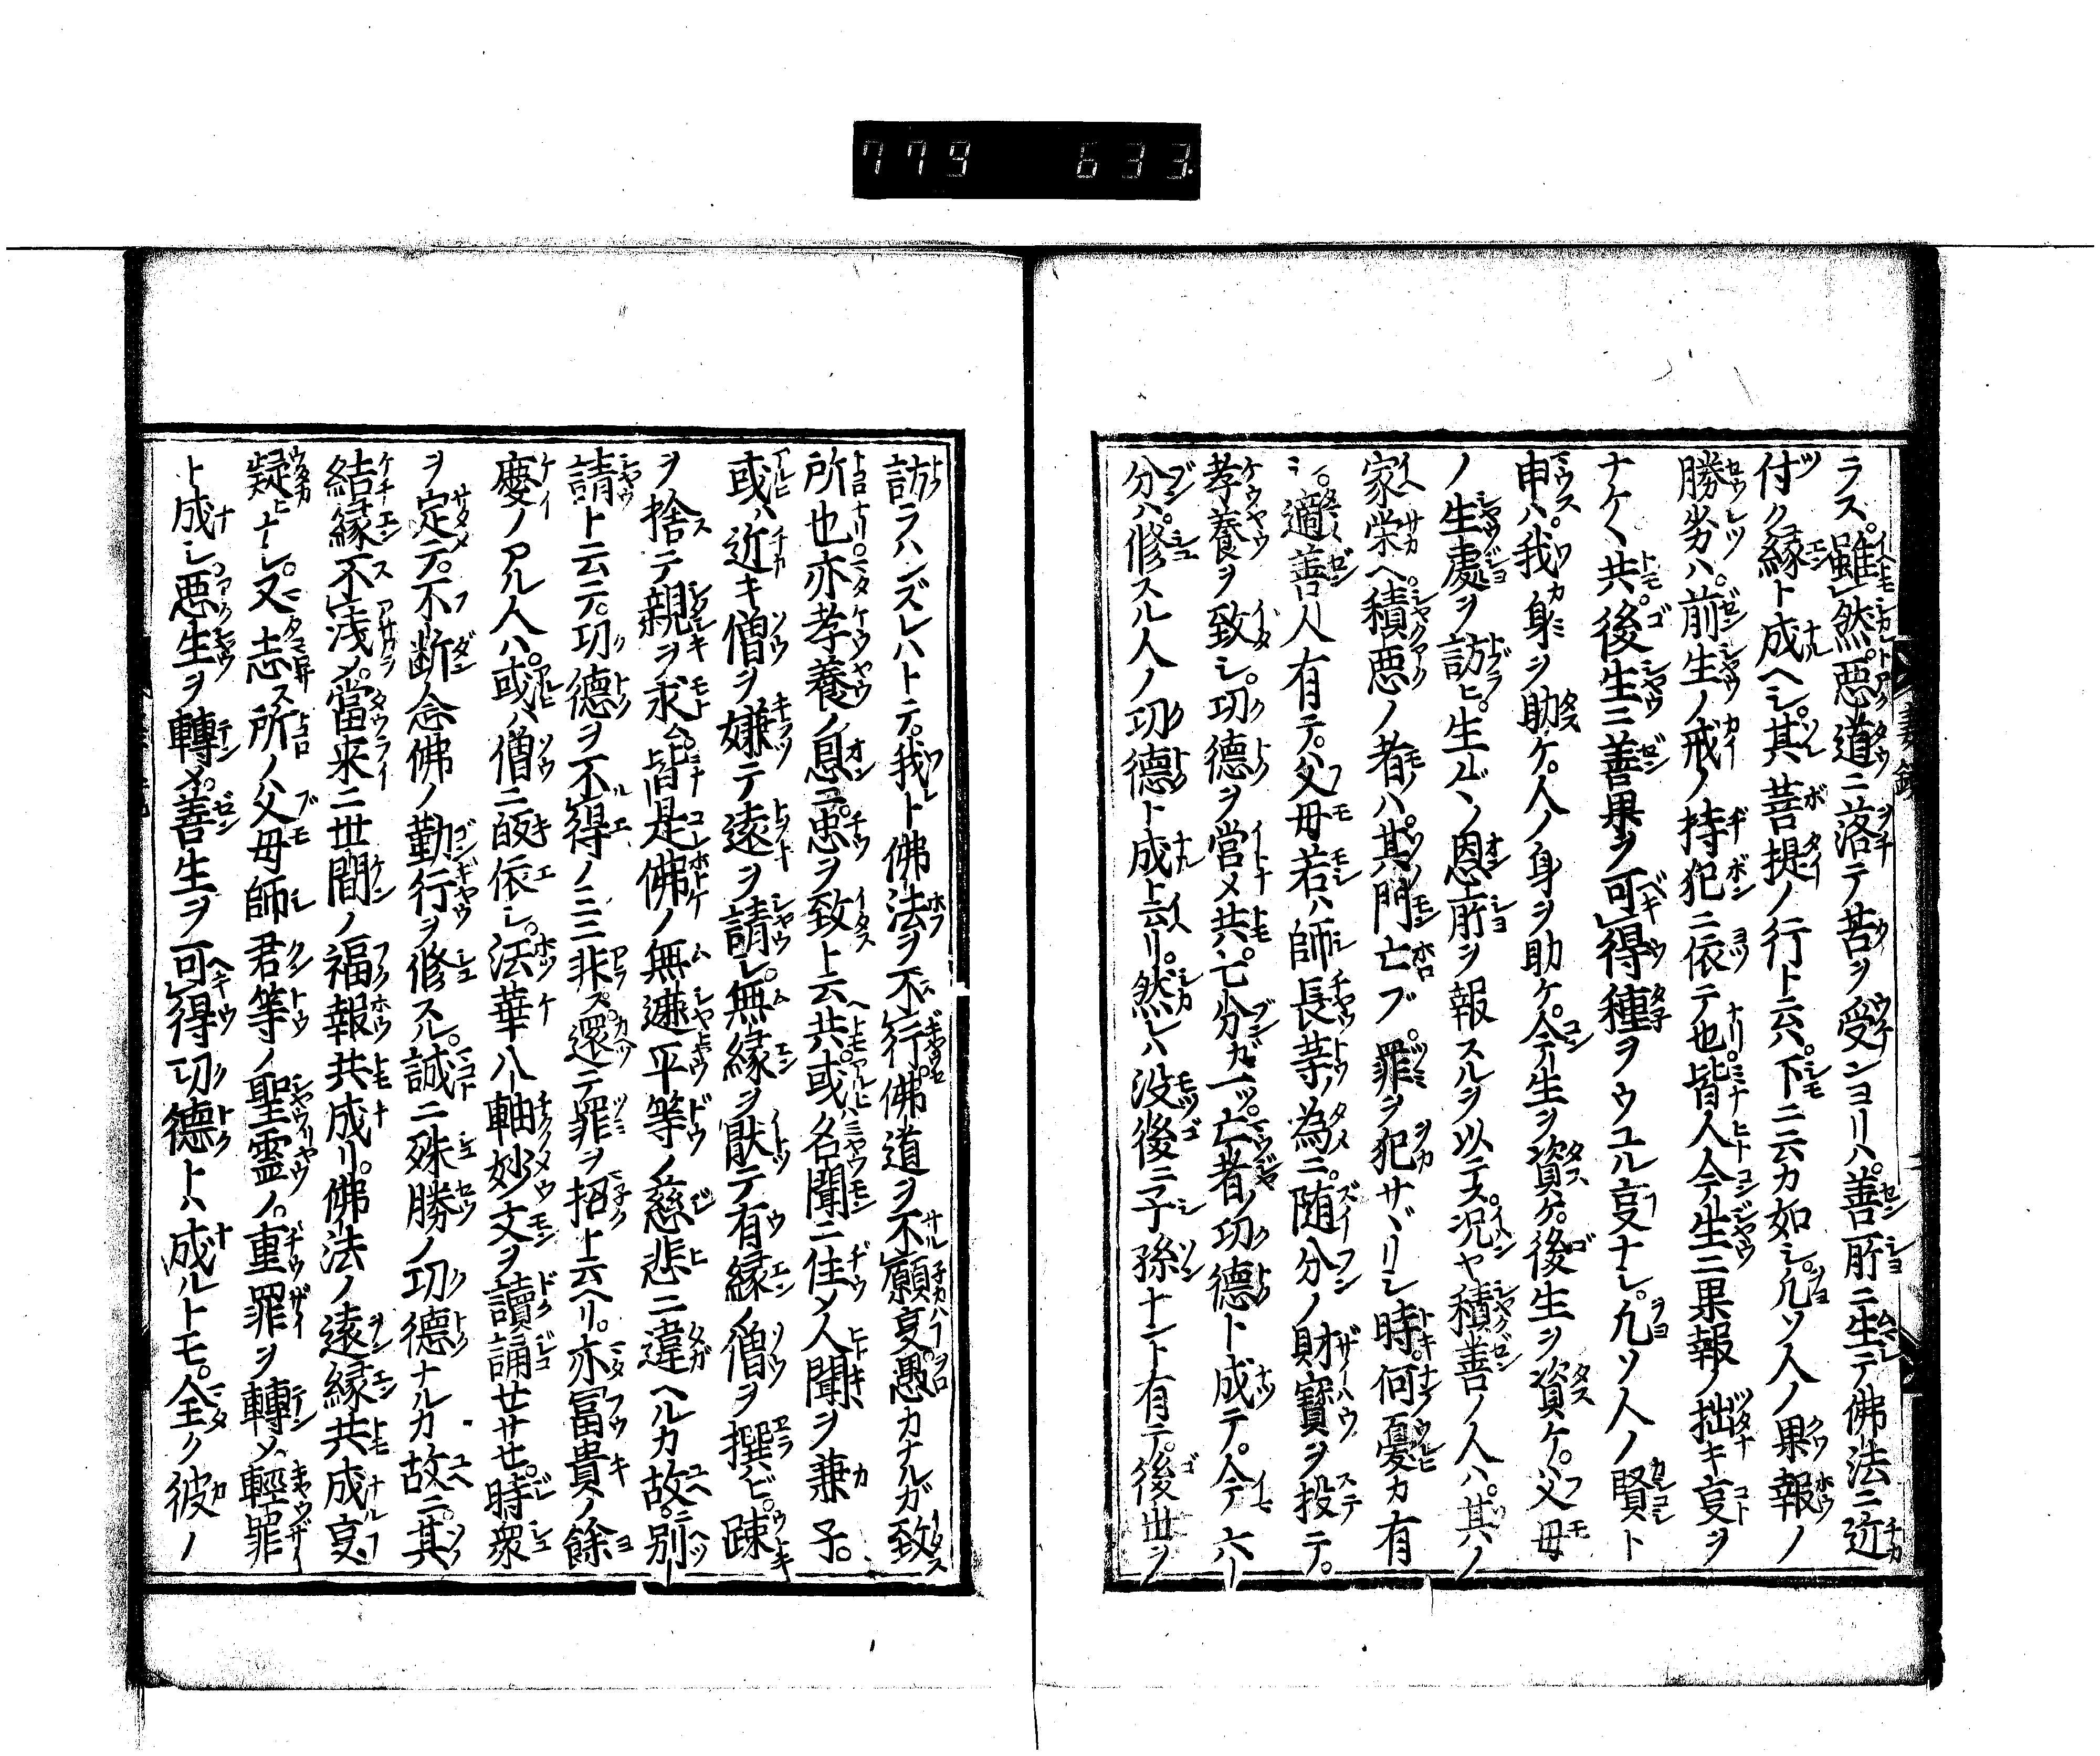 779 633.
ラス。雖然。悪道ニ落テ苦ヲ受ンヨリハ。善所ニ生テ佛法ニ近
付ク縁ト成ヘシ。其菩提ノ行ト云云。下ニ云カ如シ。凡ソ人ノ果報ノ
勝劣ハ。前生ノ戒ノ持犯ニ依テ也皆人今生ニ果報ノ拙キ亊ヲ
ナケク共。後生ニ善果ヲ可得種ヲウユル亊ナシ。凡ソ人ノ賢ト
申ハ。我身ヲ助ケ。人ノ身ヲ助ケ。今生ヲ資ケ。後生ヲ資ケ。父母
ノ生處ヲ訪ヒ。生ノ恩所ヲ報スルヲ以テス。况ヤ積善ノ人ハ。其ノ
家栄ヘ。積悪ノ者ハ。其門亡ブ。罪ヲ犯サヾリシ時。何憂カ有
ン。適善人有テ。父母若ハ師長等ノ為ニ。随分ノ財寳ヲ投テ。
孝養ヲ致シ。功德ヲ営メ共。七分ガ一ツ。亡者ノ功德ト成テ。今六
分ハ。修スル人ノ功德ト成ト云リ。然レハ没後ニ子孫十人有テ。後世ヲ
訪ラハンズレハトテ。我ト佛法ヲ不行。佛道ヲ不願亊。愚カナルガ致
所也。亦孝養ノ恩ニ。忠ヲ致ト云共。或ハ名聞ニ住ノ人聞ヲ兼子。
或ハ近キ僧ヲ嫌テ遠ヲ請シ。無縁ヲ厭テ有縁ノ僧ヲ撰ビ。踈
ヲ捨テ親ヲ求ム。皆是佛ノ無遮平等ノ慈悲ニ違ヘルカ故ニ。別
請ト云テ。功德ヲ不得ノミニ非ス。還テ罪ヲ招ト云ヘリ。亦冨貴ノ餘
慶ノアル人ハ。或ハ僧ニ皈依シ。法華八軸妙文ヲ讀誦セサセ。時衆
ヲ定テ。不断念佛ノ勤行ヲ修スル。誠ニ殊勝ノ功德ナルカ故ニ。其
結縁不浅メ。當来ニ世間ノ福報共成リ。佛法ノ遠縁共成亊。
疑ヒナシ。又志ス所ノ父母師君等ノ聖霊ノ。重罪ヲ轉メ輕罪
ト成シ。悪生ヲ轉メ。善生ヲ可得功德トハ成ルトモ。全ク彼ノ